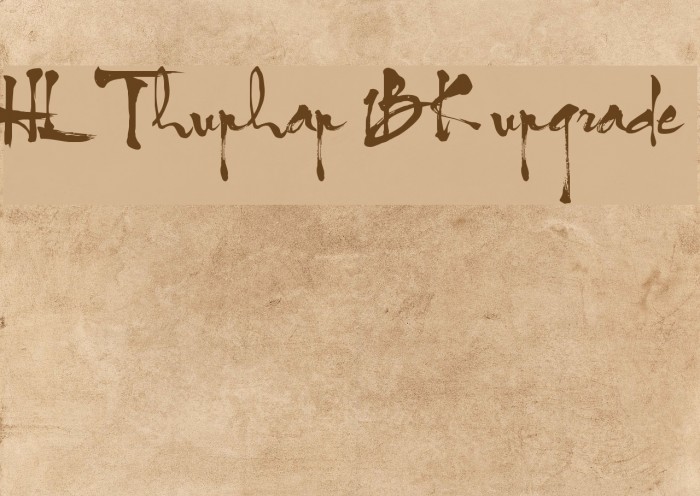 HL Thuphap 1BK upgrade